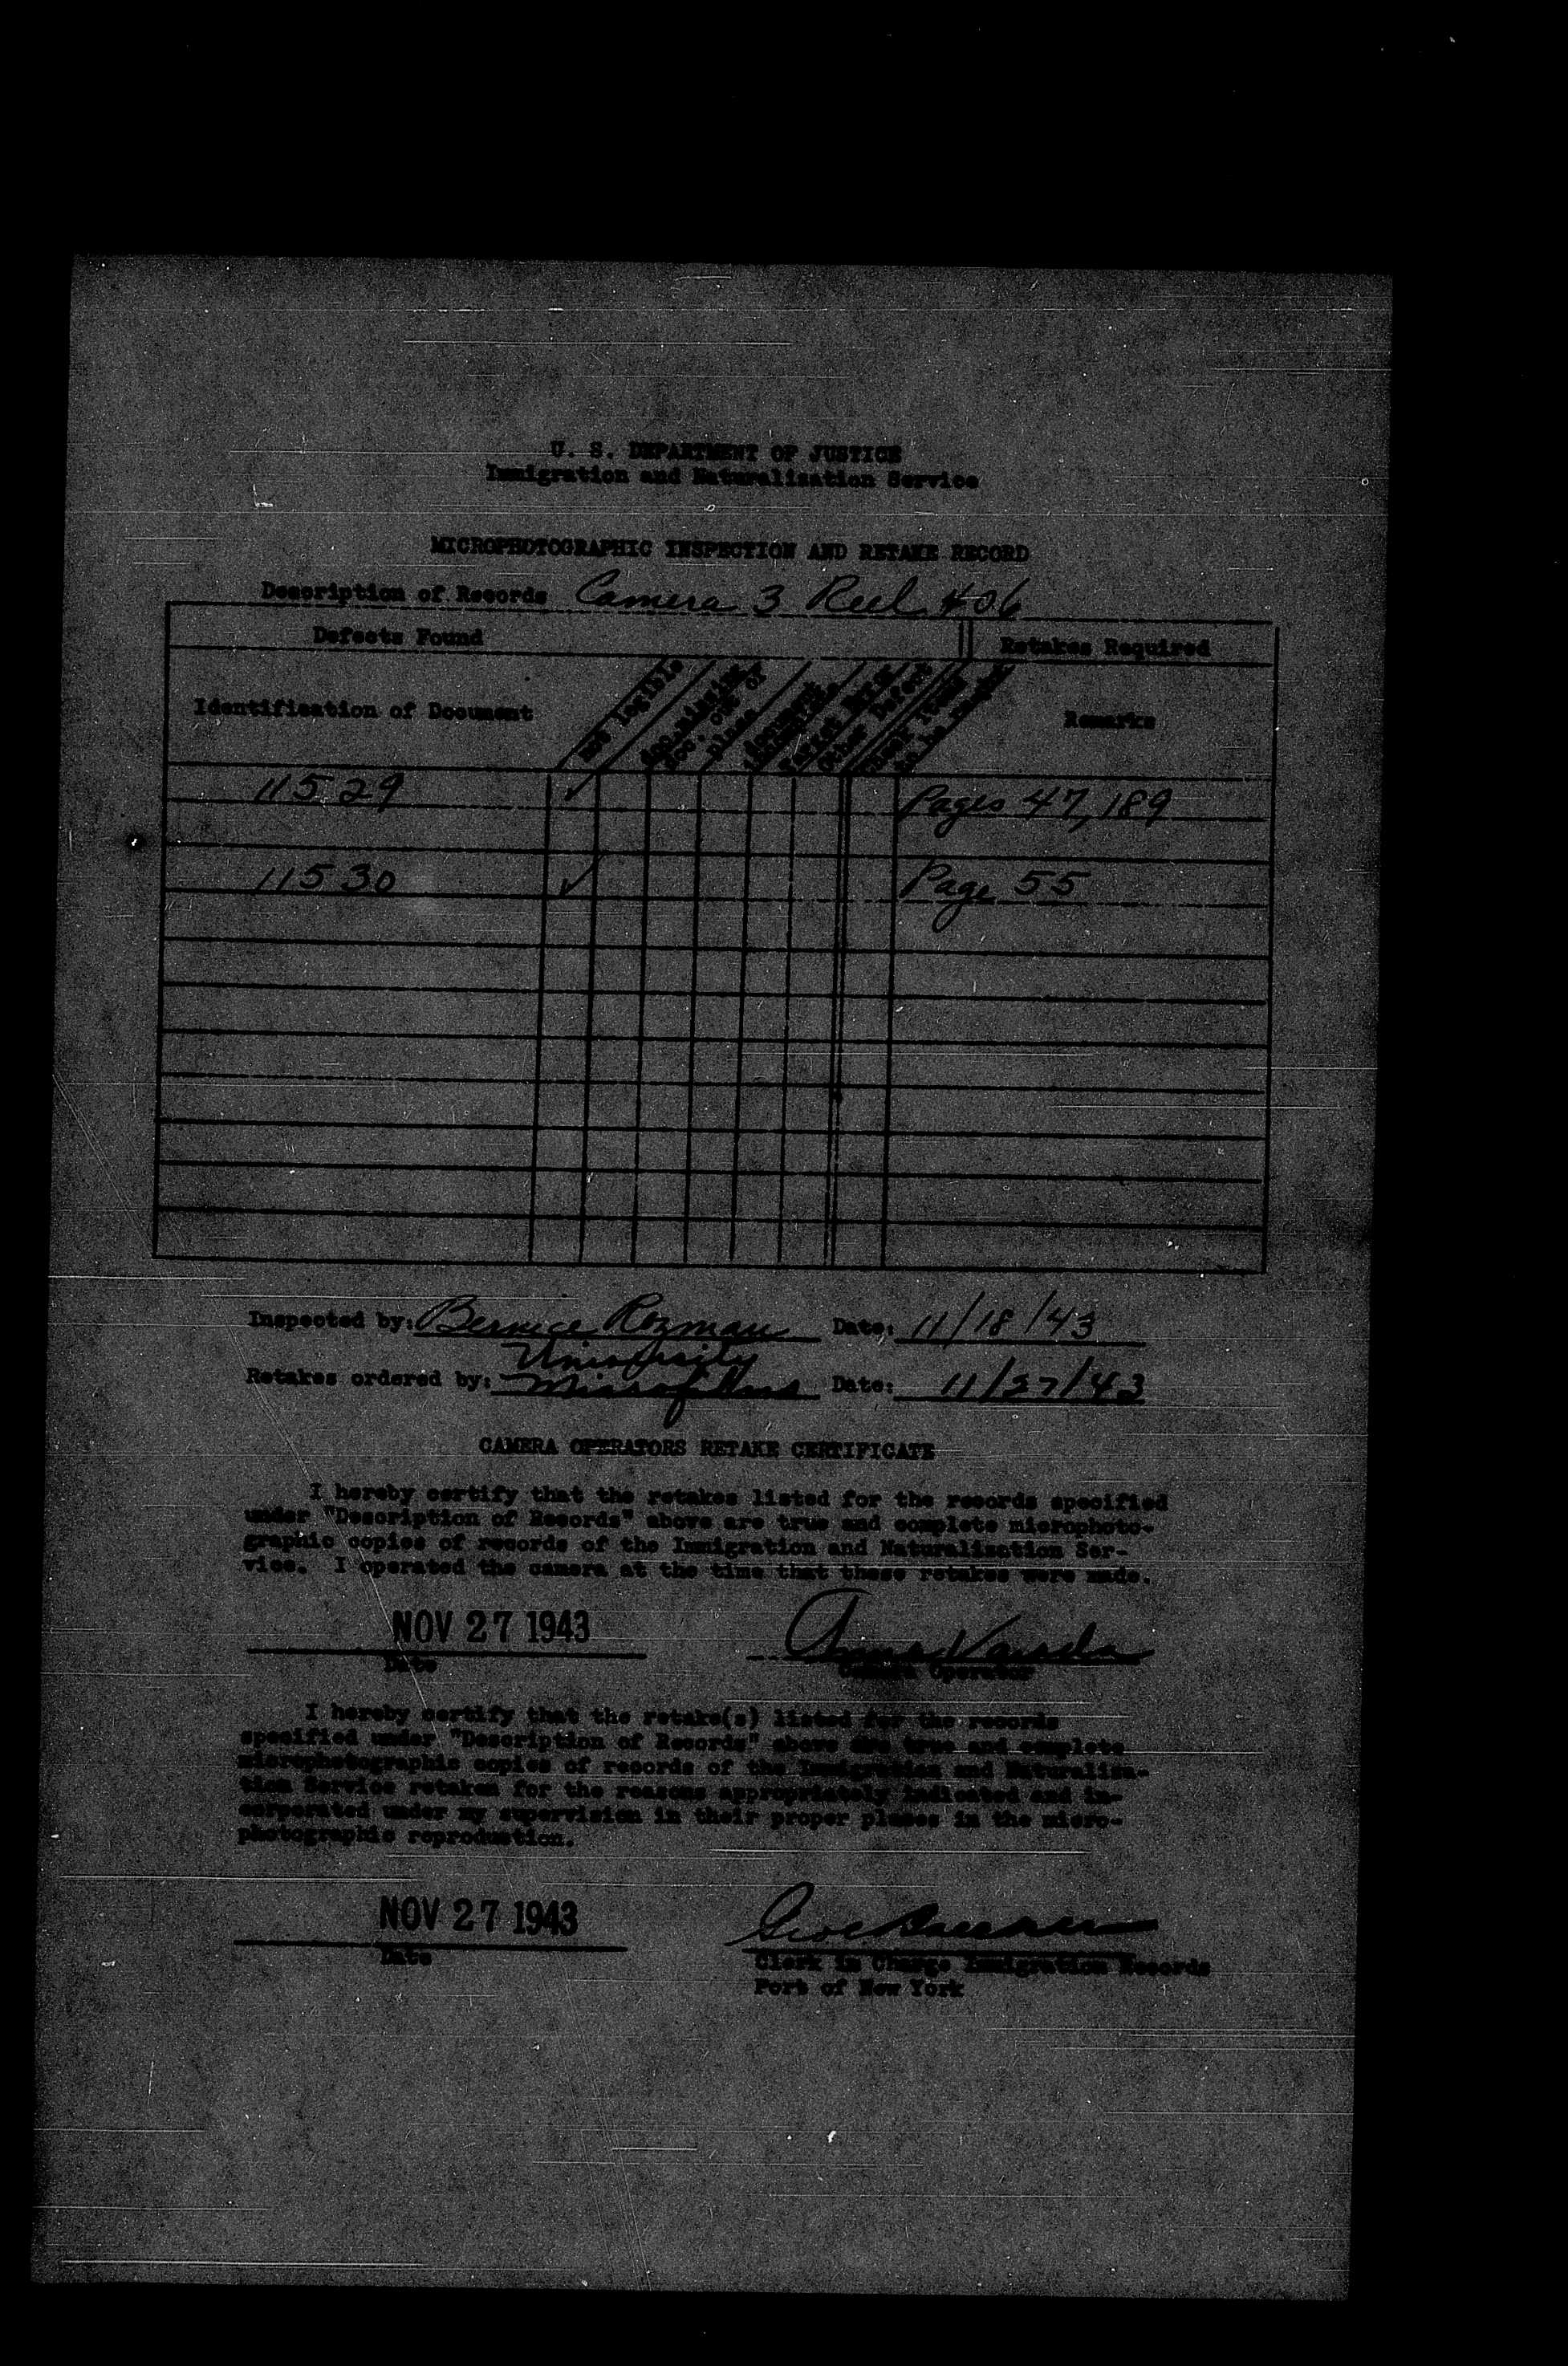 U. S. DEPARTMENT OF JUSTICE
Immigration and Naturalization Service
MICROPHOTOGRAPHIC INSPECTION AND RETAKE RECORD
Description of Records Camera 3 Reel 406
Defects Found
Retakes Required
Identification of Document
not legible
doc. missing
doc. out of
place
document
Remarks
11529 ✓ Pages 47, 189
11530 ✓ Page 55
Inspected by: Bernice Rozman Date: 11/18/43
University
Retakes ordered by: Microfilms Date: 11/27/43
CAMERA OPERATORS RETAKE CERTIFICATE
I hereby certify that the retakes listed for the records specified
under "Description of Records" above are true and complete microphoto-
graphic copies of records of the Immigration and Naturalization Ser-
vice. I operated the camera at the time that these retakes were made.
NOV 27 1943
Date
Camera Operator
I hereby certify that the retake(s) listed for the records
specified under "Description of Records" above are true and complete
microphotographic copies of records of the Immigration and Naturaliza-
tion Service retaken for the reasons appropriately indicated and in-
corporated under my supervision in their proper places in the micro-
photographic reproduction.
NOV 27 1943
Date
Clerk in Charge Immigration Records
Port of New York